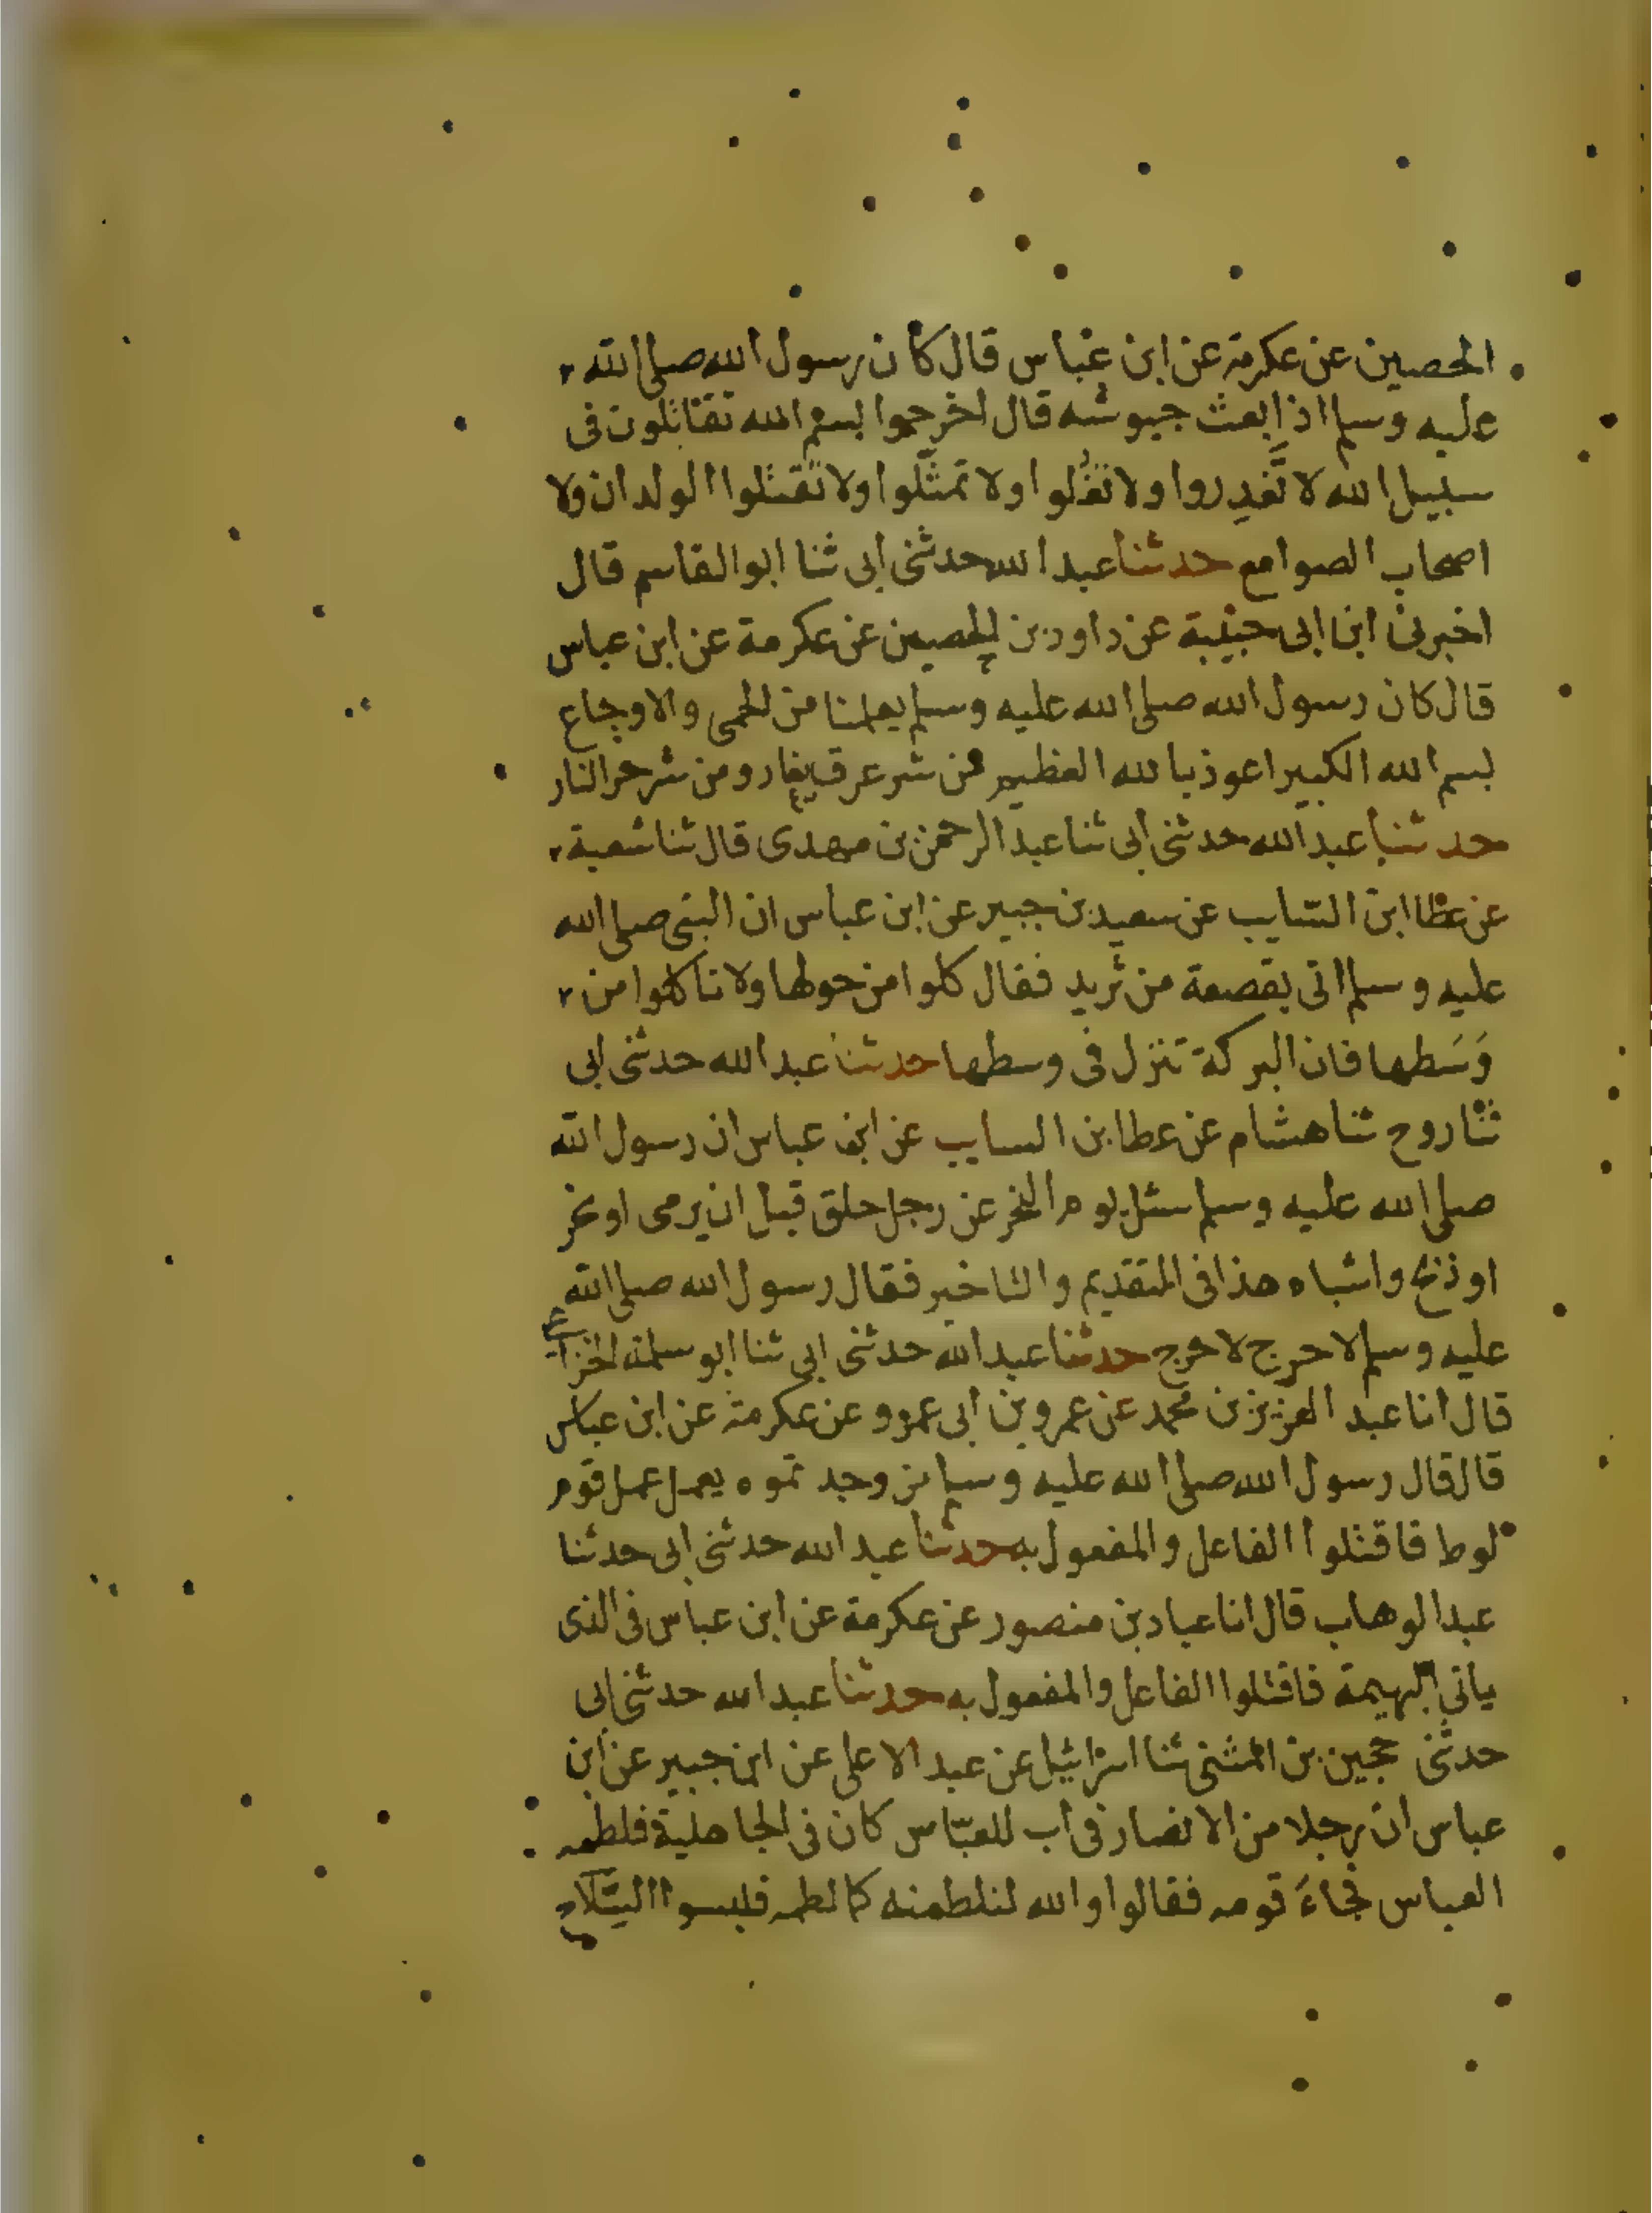 الحصين عن عكرمة عن ابن عباس قال كان رسول الله صلى الله
عليه وسلم اذا بعث جيوشه قال اخرجوا بسم الله تقاتلون فى
سبيل الله لا تَغدِروا ولا تغُلوا ولا تمثّلوا ولا تقتلوا الولدان ولا
اصحاب الصوامع حدثنا عبد الله حدثنى ابى ثنا ابو القاسم قال
اخبرنى ابن ابى حبيبة عن داود بن الحصين عن عكرمة عن ابن عباس
قال كان رسول الله صلى الله عليه وسلم يعلمنا من الحمى والاوجاع
بسم الله الكبير اعوذ بالله العظيم من شر عرق يغار ومن شر حر النار
حدثنا عبد الله حدثنى ابى ثنا عبد الرحمن بن مهدى قال ثنا شعبة
عن عطا ابن السّايب عن سعيد بن جبير عن ابن عباس ان النبى صلى الله
عليه وسلم اتى بقصعة من ثريد فقال كلوا من حولها ولا تاكلوا من
وَسَطها فان البركة تنزل فى وسطها حدثنا عبد الله حدثنى ابى
ثنا روح ثنا هشام عن عطا بن السايب عن ابن عباس ان رسول الله
صلى الله عليه وسلم سئل يوم النحر عن رجل حلق قبل ان يرمى او نحر
او ذبح واشباه هذا فى التقديم والتاخير فقال رسول الله صلى الله
عليه وسلم لا حرج لا حرج حدثنا عبد الله حدثنى ابى ثنا ابو سلمة الخزاعى
قال انا عبد العزيز بن محمد عن عمرو بن ابى عمرو عن عكرمة عن ابن عباس
قال قال رسول الله صلى الله عليه وسلم من وجدتموه يعمل عمل قوم
لوط فاقتلوا الفاعل والمفعول به حدثنا عبد الله حدثنى ابى حدثنا
عبد الوهاب قال انا عباد بن منصور عن عكرمة عن ابن عباس فى الذى
ياتى البهيمة فاقتلوا الفاعل والمفعول به حدثنا عبد الله حدثنى ابى
حدثنى حجين بن المثنى ثنا اسرائيل عن عبد الاعلى عن ابن جبير عن ابن
عباس ان رجلا من الانصار فى اب للعبّاس كان فى الجاهلية فلطمه
العباس فجاءَ قومه فقالوا والله لنلطمنه كما لطمه فلبسوا السّلاح